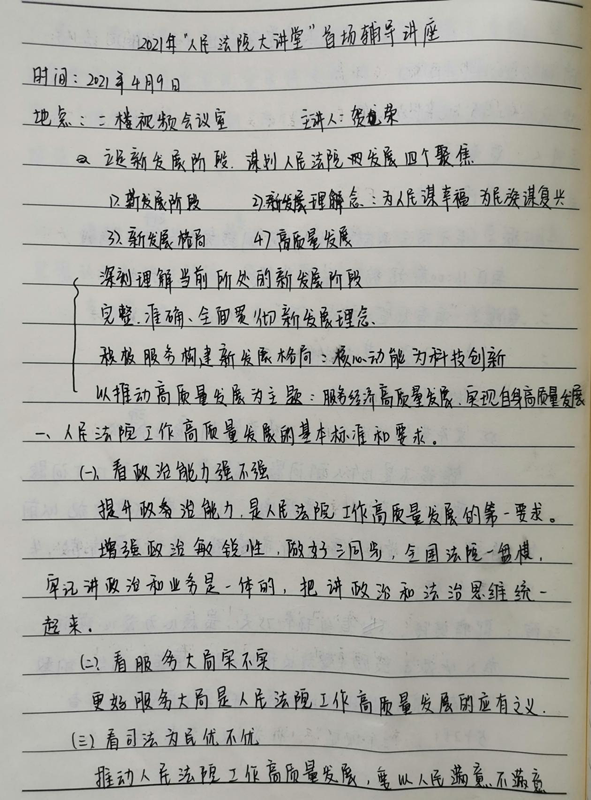 2021年"人民法院大讲堂"首场辅导讲座
时间：2021年4月9日
地点：二楼视频会议室 主讲人：贺荣
立足新发展阶段.谋划人民法院发展四个聚焦
1).新发展阶段 2)新发展理念：为人民谋幸福 为民族谋复兴
3).新发展格局 4)高质量发展
深刻理解当前所处的新发展阶段
完整、准确、全面贯彻新发展理念.
积极服务构建新发展格局：核心动能为科技创新
以推动高质量发展为主题：服务经济高质量发展.实现自身高质量发展
一、人民法院工作高质量发展的基本标准和要求。
(一).看政治能力强不强
提升政治能力.是人民法院工作高质量发展的第一要求。
增强政治敏锐性，做好三同步，全国法院一盘棋.
牢记讲政治和业务是一体的，把讲政治和法治思维统一
起来.
(二).看服务大局实不实
更好服务大局是人民法院工作高质量发展的应有之义.
(三)看司法为民优不优
推动人民法院工作高质量发展，要以人民满意不满意